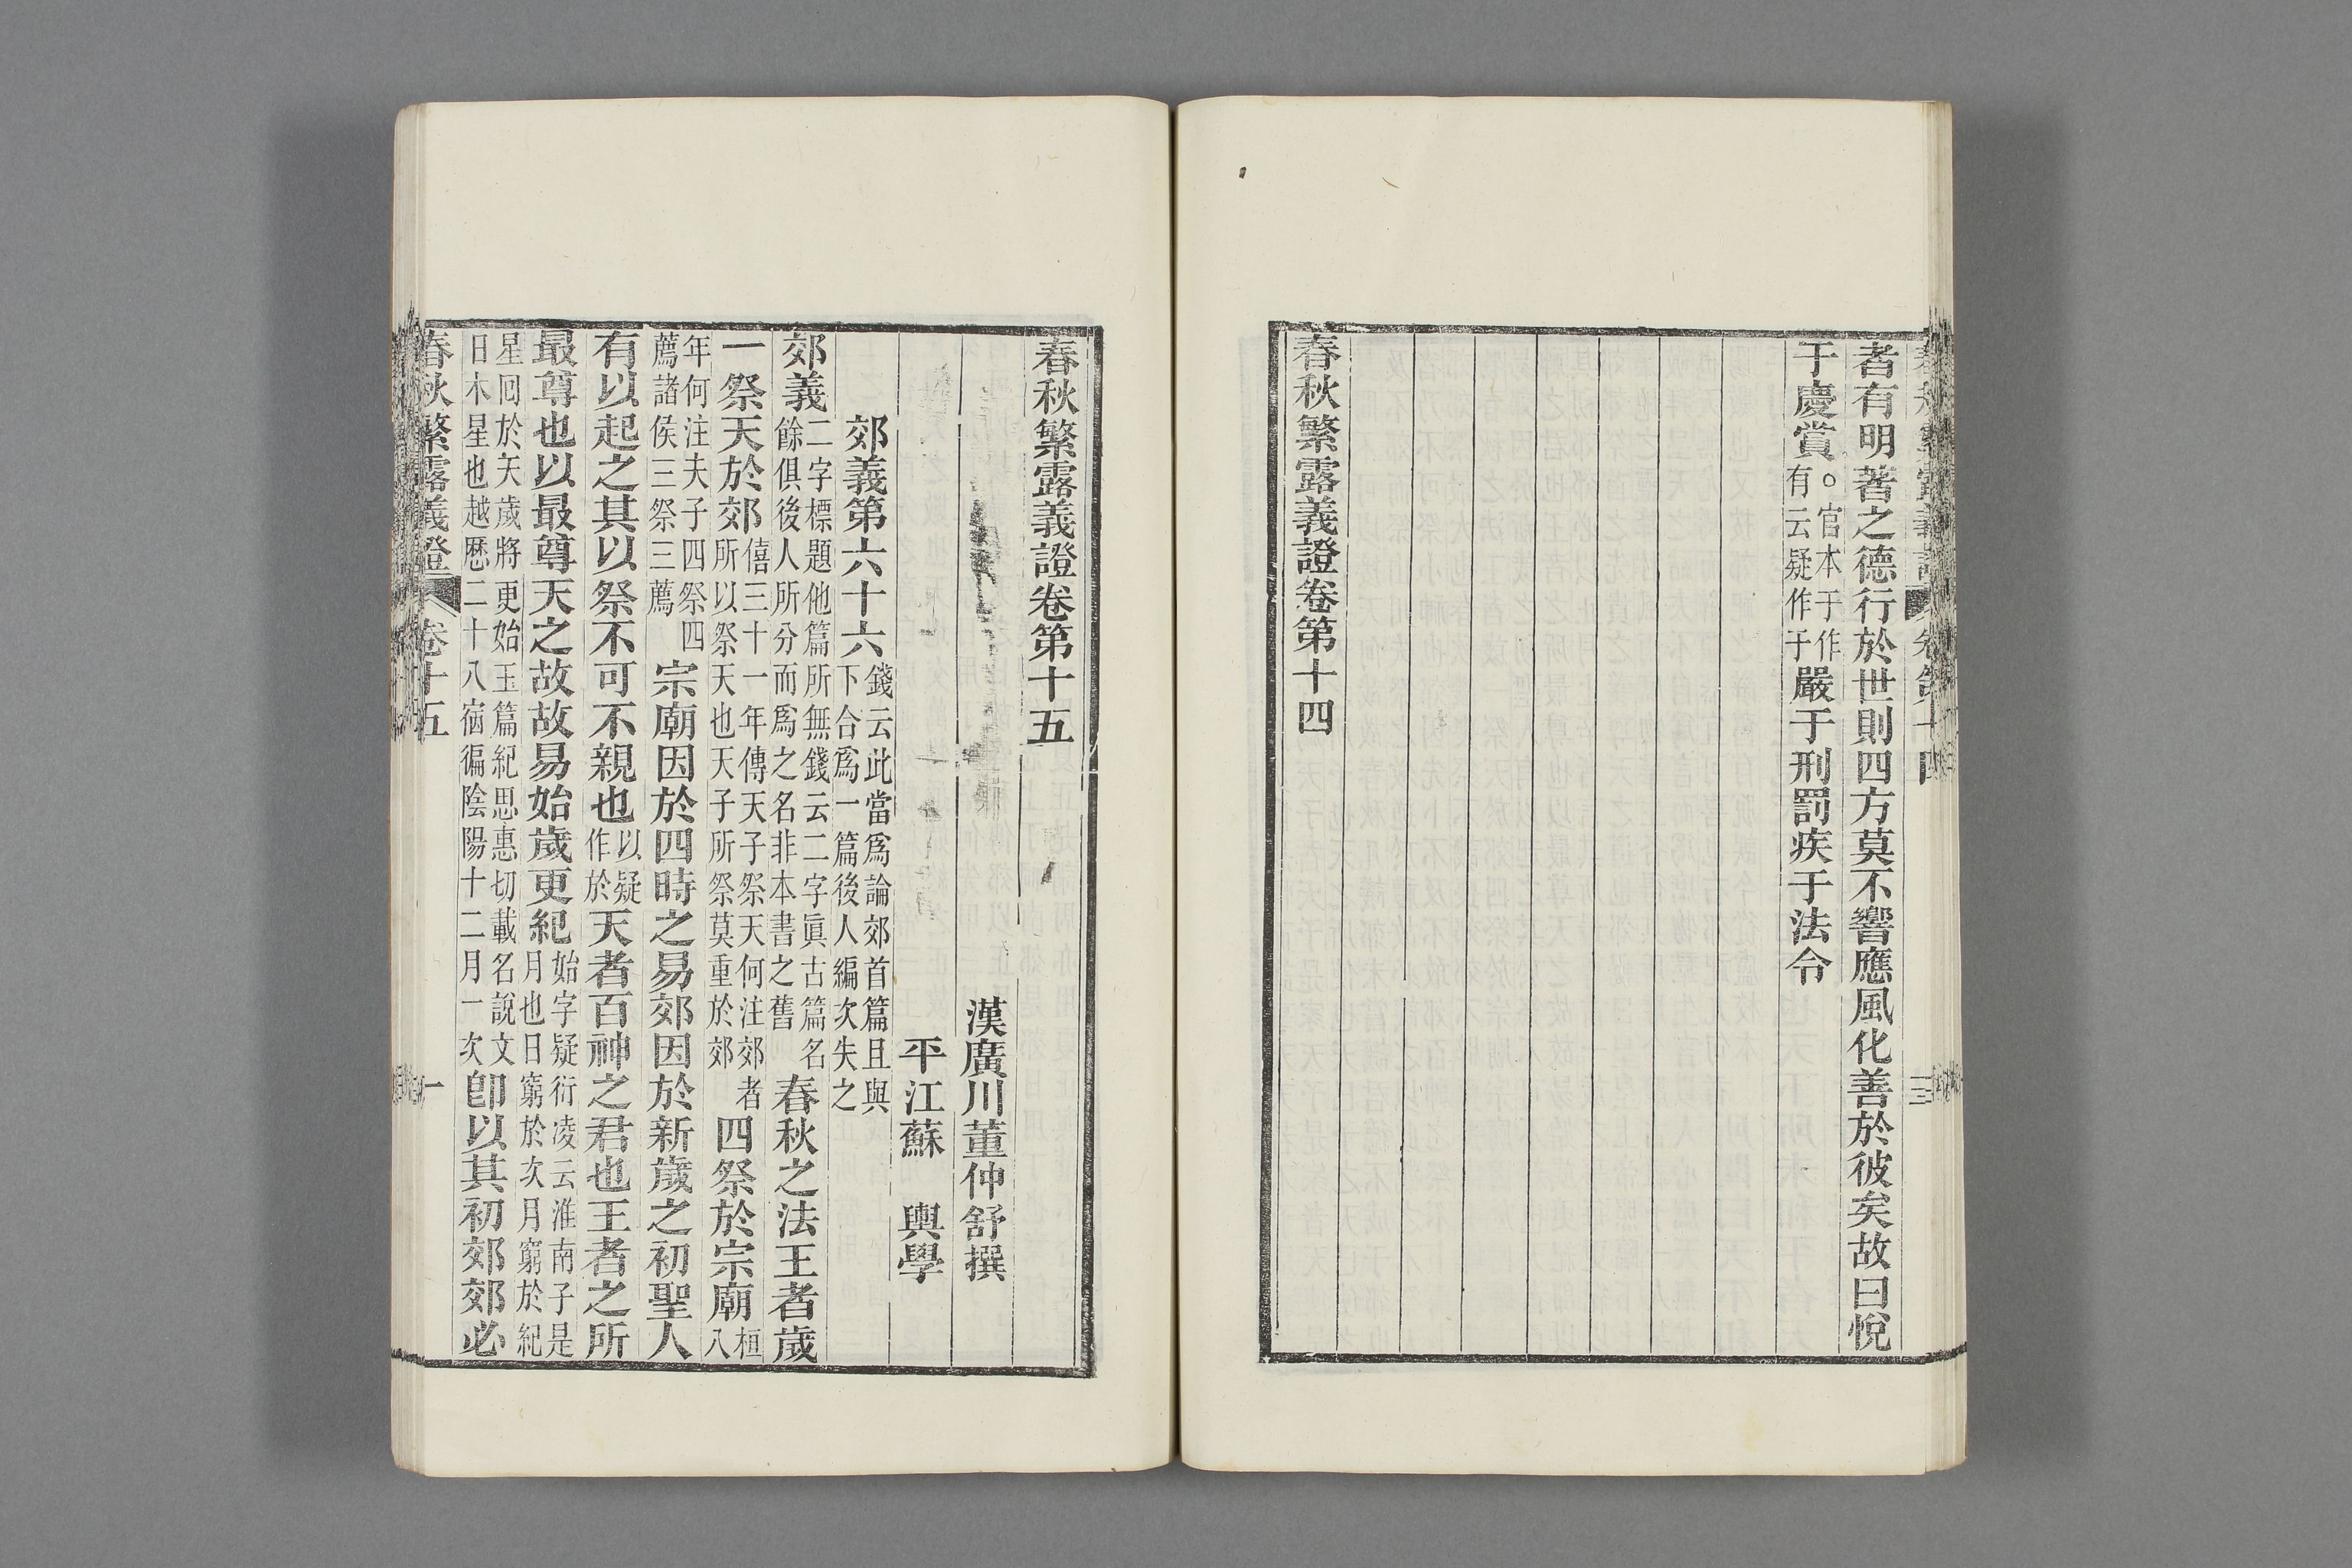 者有明著之德行於世則四方莫不響應風化善於彼矣故曰悅
于慶賞○官本于作有云疑作于嚴于刑罰疾于法令
春秋繁露義證卷第十四
春秋繁露義證卷第十五
漢廣川董仲舒撰
平江蘇 輿學
郊義第六十六錢云此當爲論郊首篇且與下合爲一篇後人編次失之
郊義二字標題他篇所無錢云二字眞古篇名餘俱後人所分而爲之名非本書之舊春秋之法王者歲
一祭天於郊僖三十一年傳天子祭天何注郊者所以祭天也天子所祭莫重於郊四祭於宗廟桓八
年何注夫子四祭四薦諸侯三祭三薦宗廟因於四時之易郊因於新歲之初聖人
有以起之其以祭不可不親也以疑作於天者百神之君也王者之所
最尊也以最尊天之故故易始歲更紀始字疑衍凌云淮南子是月也日窮於次月窮於紀
星囘於天歲將更始玉篇紀思惠切載名說文日木星也越歷二十八宿徧陰陽十二月一次卽以其初郊郊必
春秋繁露義證 卷十五 一